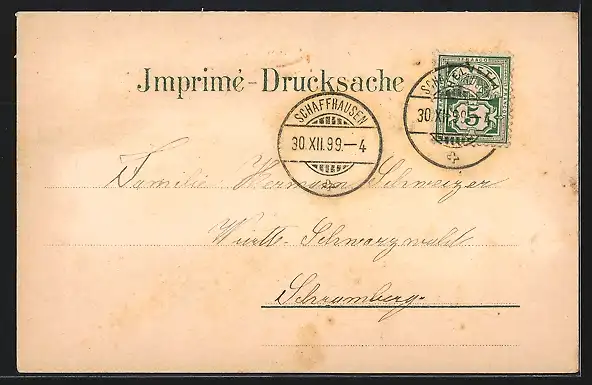 Imprimé-Drucksache
SCHAFFHAUSEN
30.XII.99.–4
30.XII.99.–4
HELVETIA
5
Familie Hermann Schweizer
Württ. Schwarzwald
Schramberg.